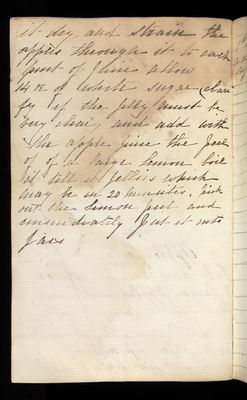 it dry and strain the
apples through it to each
pint of juice allow
14 oz of white sugar (clari
fy if the jelly must be
very clear) and add with
the apple juice the peel
of of a large lemon boil
it till it jellies which
may be in 20 minutes. Pick
out the lemon peel and
immidiately put it into
Jars